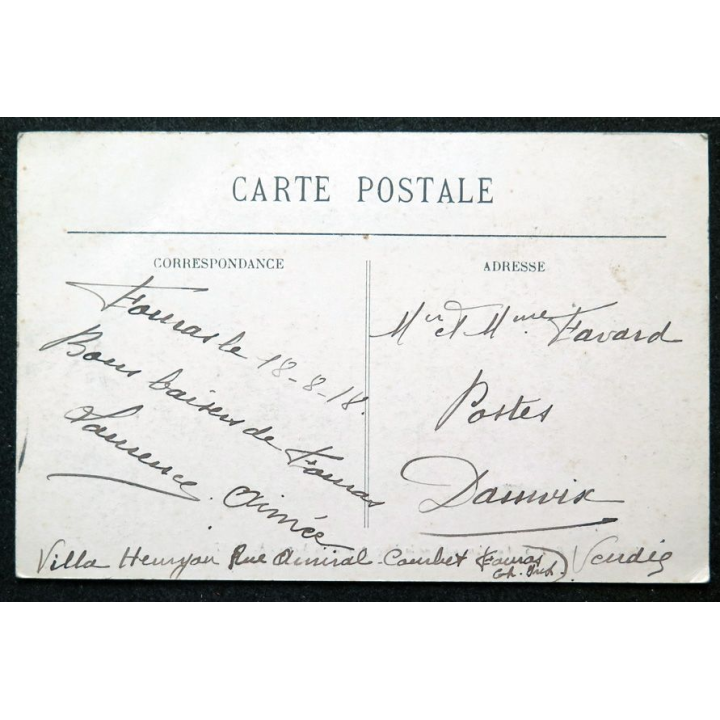 CARTE POSTALE
CORRESPONDANCE
Fouras le 18-8-18.
Bons baisers de Fouras
Laurence. Aimée
ADRESSE
Mr et Mme Favard
Postes
Damvix
Villa Rue Amiral Courbet Fouras
Ch. Inf.
Vendée